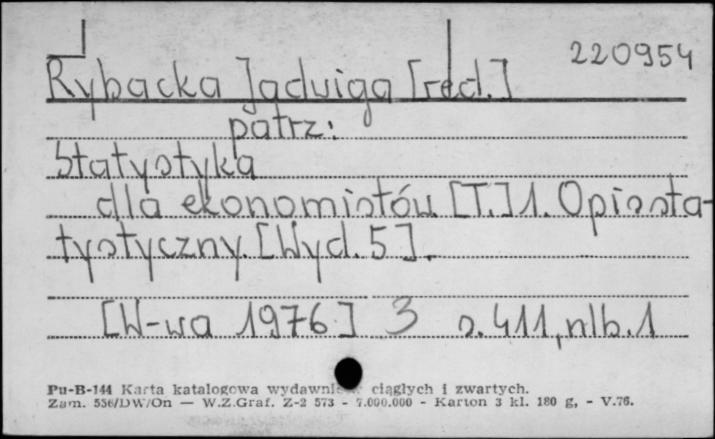 220954
Rybacka Jadwiga [red.]
patrz:
Statystyka
dla ekonomistów [T.] 1. Opis sta-
tystyczny. [Wyd. 5].
[W-wa 1976] 3 s. 411, nlb. 1
Pu-B-144 Karta katalogowa ciągłych i zwartych.
Zam. 556/DW/On — W.Z.Graf. Z-2 573 - 7.000.000 - Karton 3 kl. 180 g, - V.76.